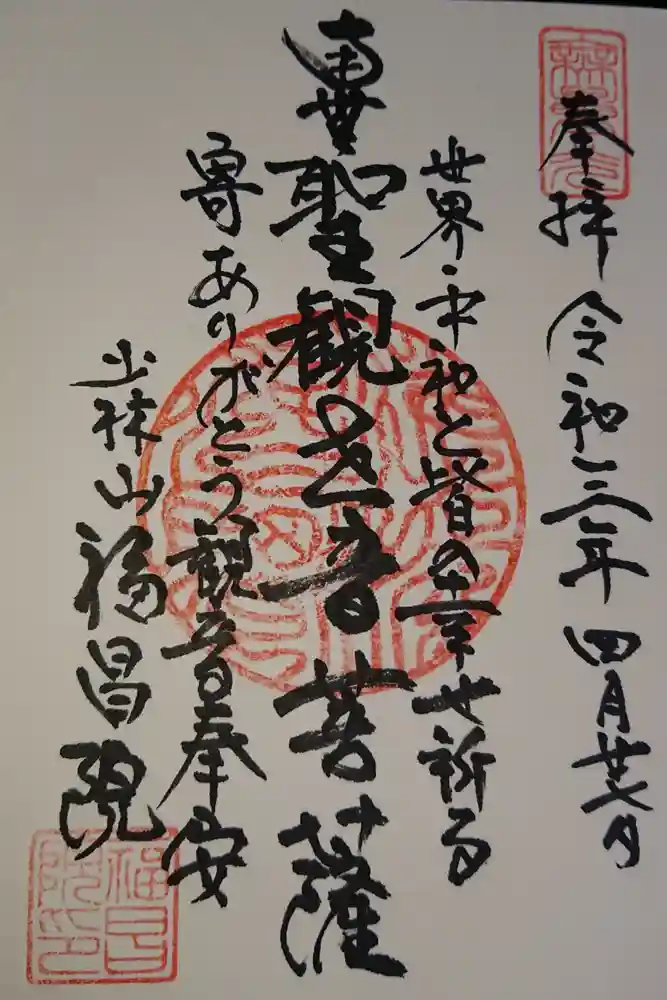 奉拝 令和三年四月廿七日
世界平和と皆の幸せ祈る
聖観世音菩薩
寄ありがとう観音奉安
少林山福昌院
福昌院印